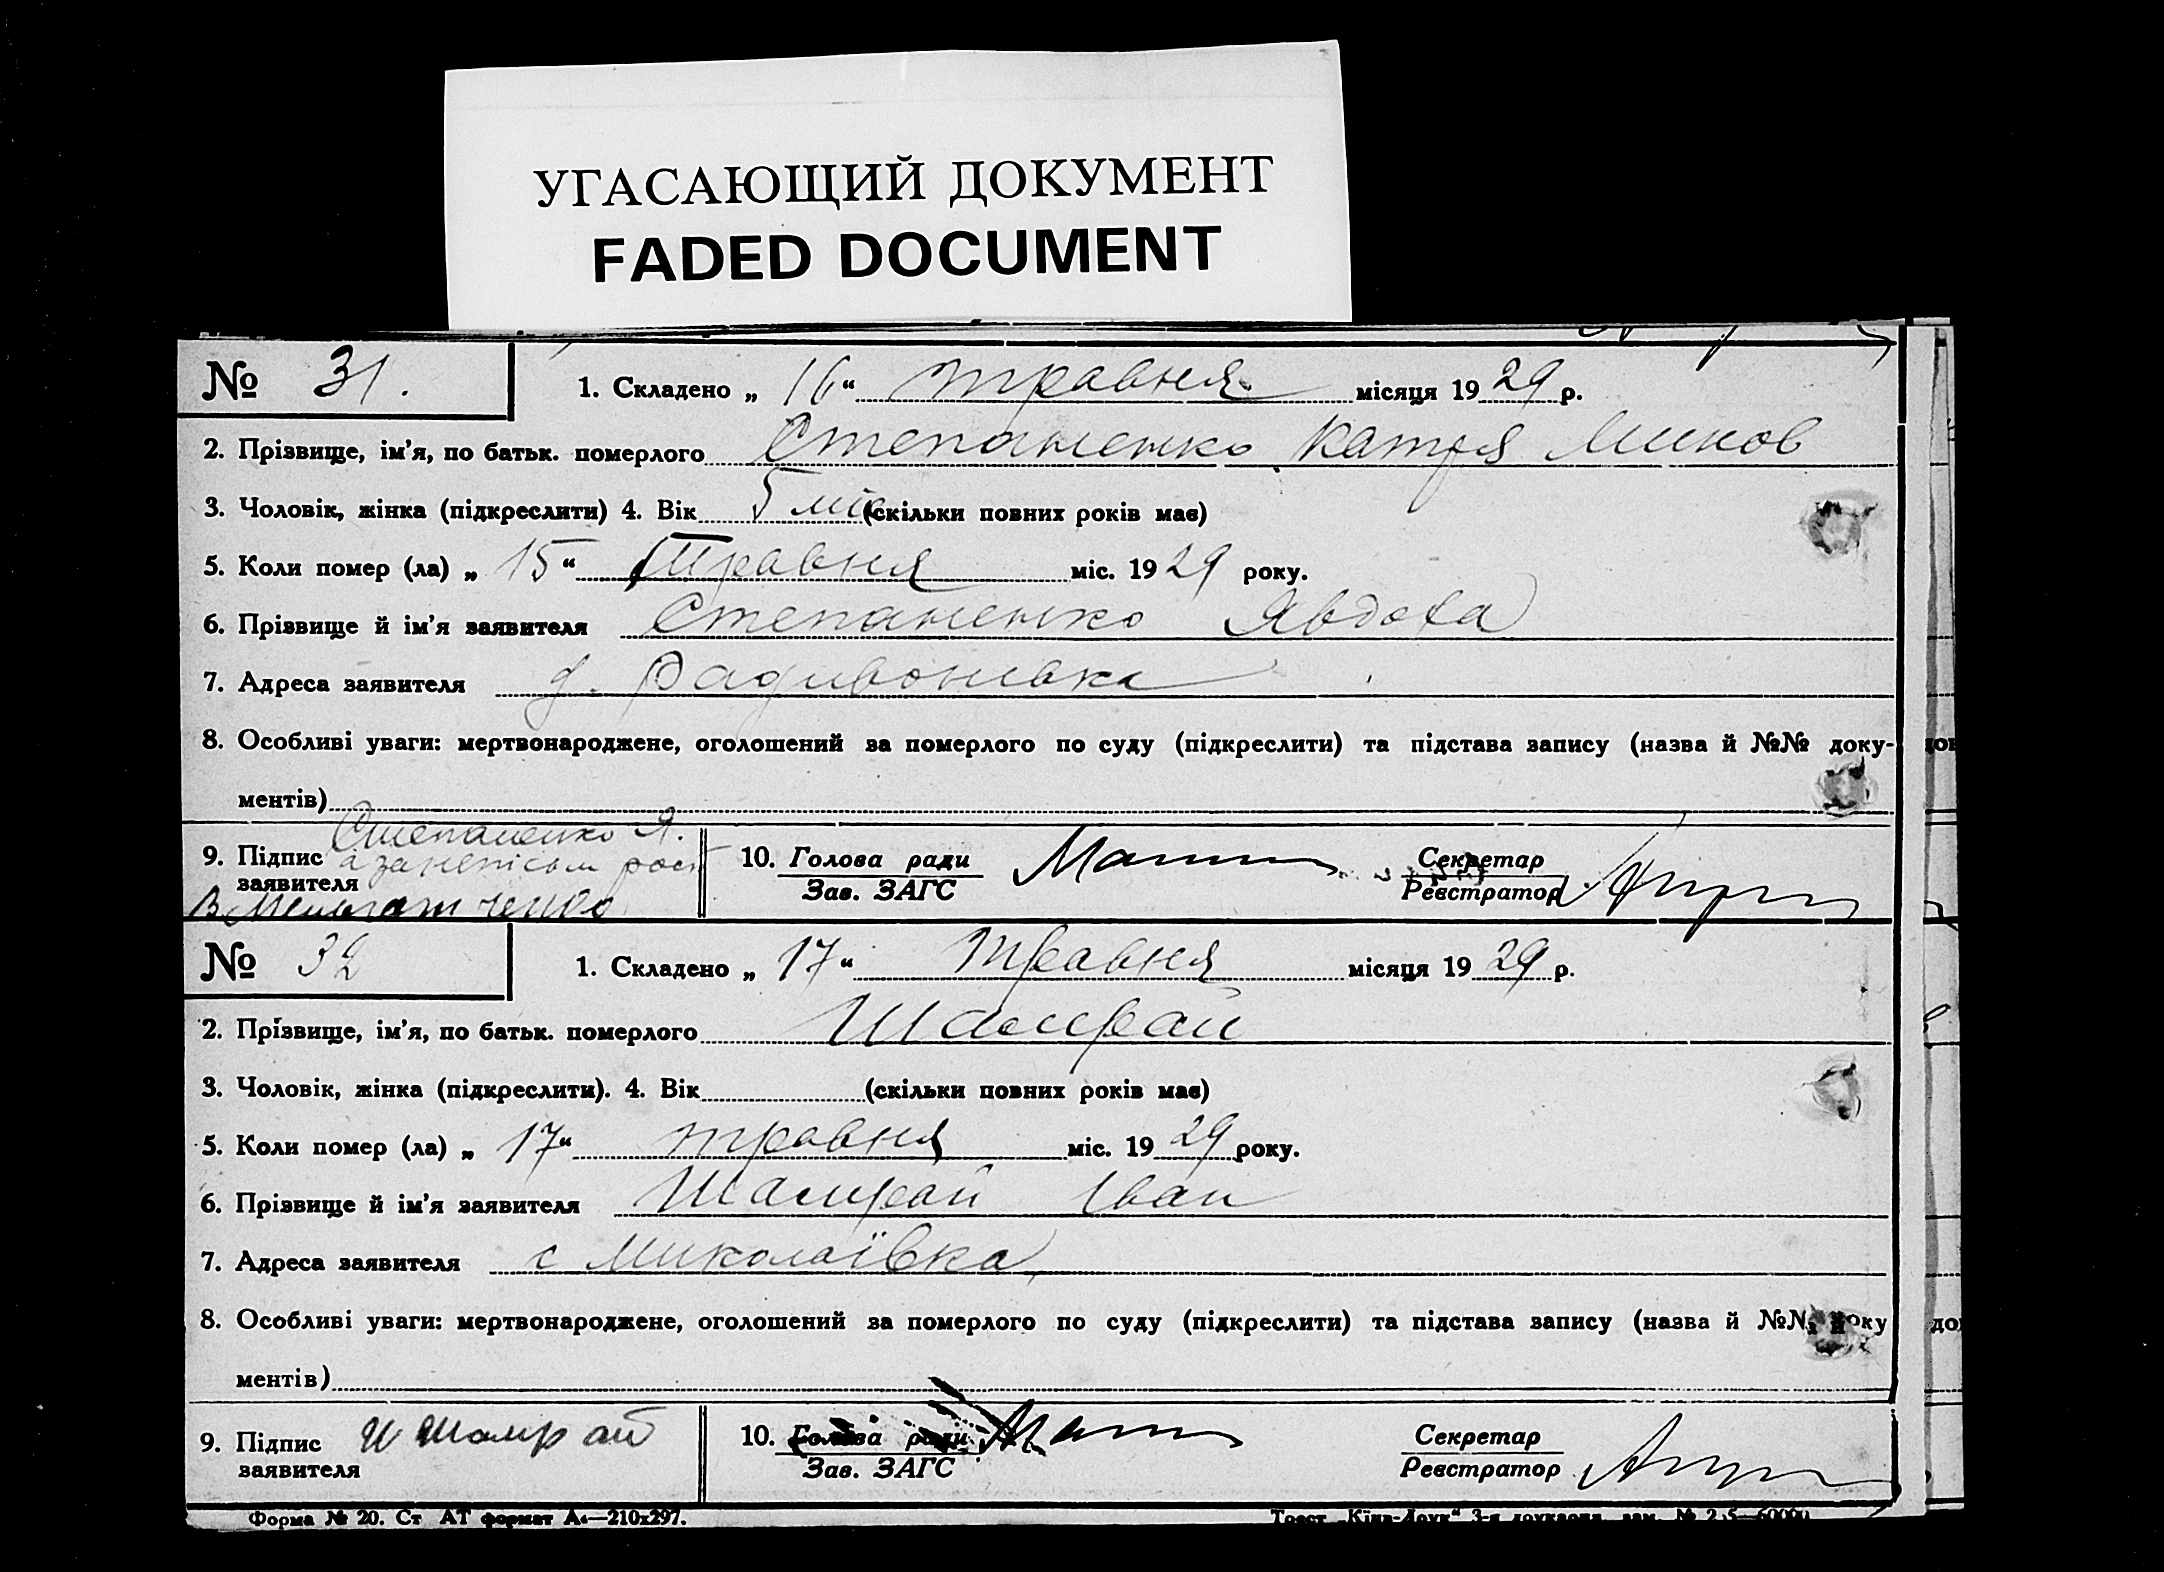 УГАСАЮЩИЙ ДОКУМЕНТ
FADED DOCUMENT
№ 31.
1. Складено „ 16 “ травня місяця 1929 р.
2. Прізвище, ім’я, по батьк. померлого Степаненко Катря Миков
3. Чоловік, жінка (підкреслити) 4. Вік 5 міс (скільки повних років має)
5. Коли помер (ла) „ 15 “ Травня міс. 1929 року.
6. Прізвище й ім’я заявителя Степаненко Явдоха
7. Адреса заявителя Радивонівка
8. Особливі уваги: мертвонароджене, оголошений за померлого по суду (підкреслити) та підстава запису (назва й №№ доку-
ментів)
Степаненко Я.
9. Підпис а за неписьм росп
заявителя
10. Голова ради
Зав. ЗАГС
Секретар
Реєстратор
№ 32
1. Складено „ 17 “ травня місяця 1929 р.
2. Прізвище, ім’я, по батьк. померлого Шамрай
3. Чоловік, жінка (підкреслити). 4. Вік (скільки повних років має)
5. Коли помер (ла) „ 17 “ травня міс. 1929 року.
6. Прізвище й ім’я заявителя Шамрай Іван
7. Адреса заявителя с Миколаївка
8. Особливі уваги: мертвонароджене, оголошений за померлого по суду (підкреслити) та підстава запису (назва й №№ доку
ментів)
9. Підпис И Шамрай
заявителя
10. Голова ради
Зав. ЗАГС
Секретар
Реєстратор
Форма № 20. Ст АТ формат А₄—210х297.
Трест „Київ-Друк“ 3-я друкарня